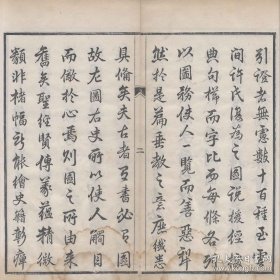 引證者無慮數十百種至雲
間許氏復爲之圖說援經
典句櫛而字比而每條各列
以圖務使人一覽而善惡犁
然於是篇垂教之意庶幾悉
二
具備矣夫古者書必有圖
故左圖右史所以使人觸目
而儆於心焉則圖之所由來
舊矣聖經賢傳義蘊精微
類非楮幅所能繪史籍彰癉